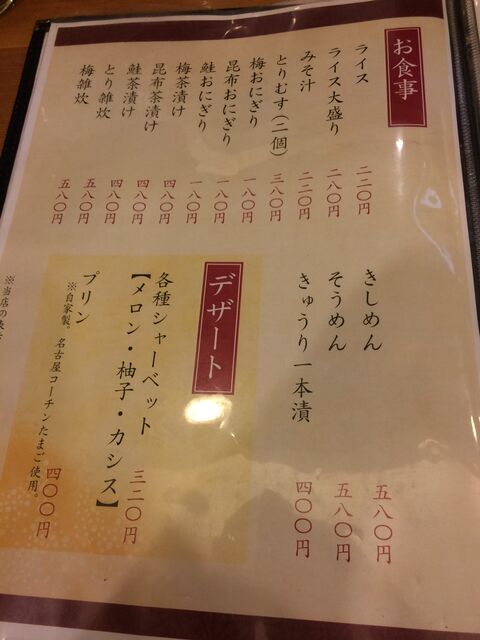 お食事
ライス 二二〇円
ライス大盛り 二八〇円
みそ汁 二二〇円
とりむす(二個) 三八〇円
梅おにぎり 一八〇円
昆布おにぎり 一八〇円
鮭おにぎり 一八〇円
梅茶漬け 四八〇円
昆布茶漬け 四八〇円
鮭茶漬け 四八〇円
とり雑炊 五八〇円
梅雑炊 五八〇円
きしめん 五八〇円
そうめん 五八〇円
きゅうり一本漬 四〇〇円
デザート
各種シャーベット
【メロン・柚子・カシス】 三二〇円
プリン 四〇〇円
※自家製。名古屋コーチンたまご使用。
※当店の